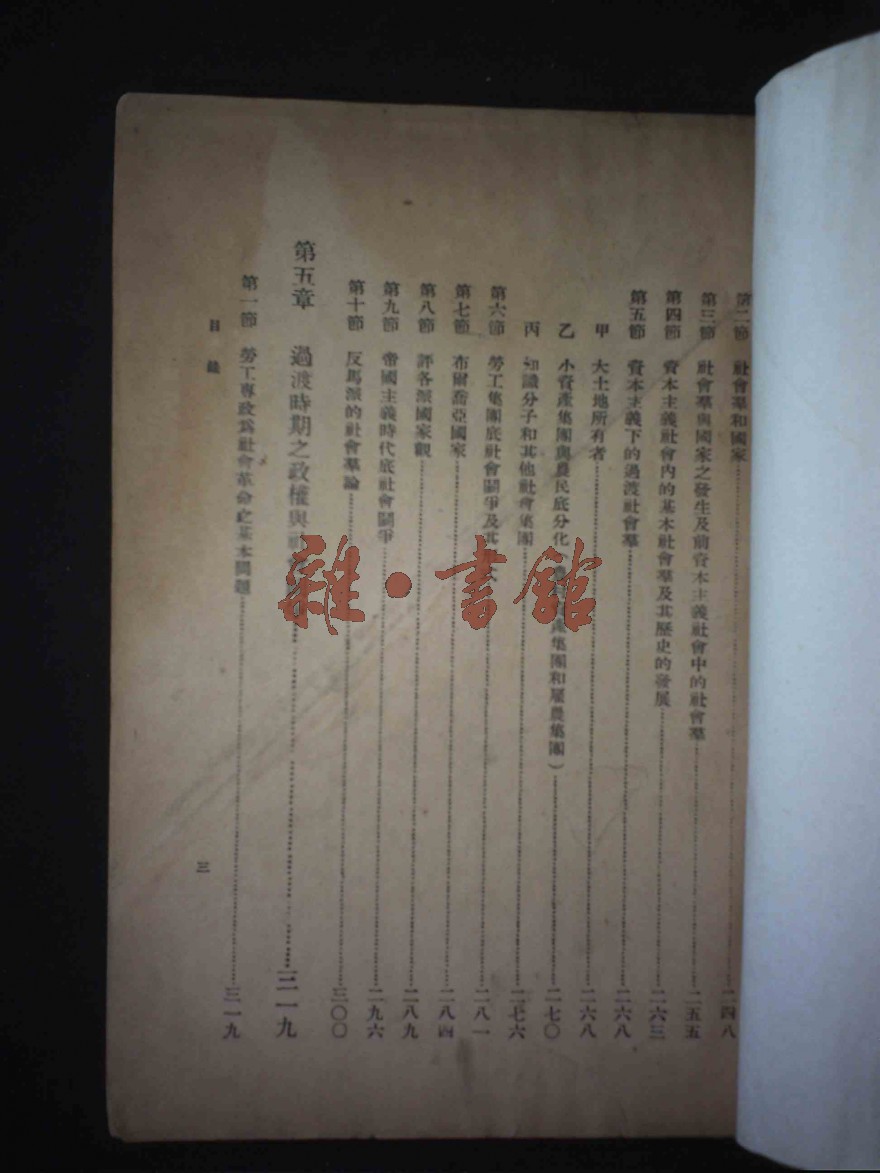 第二節 社會羣和國家……二四八
第三節 社會羣與國家之發生及前資本主義社會中的社會羣……二五五
第四節 資本主義社會內的基本社會羣及其歷史的發展……二六三
第五節 資本主義下的過渡社會羣……二六八
甲 大土地所有者……二六八
乙 小資產集團與農民底分化（產集團和雇農集團）……二七〇
丙 知識分子和其他社會集團……二七六
第六節 勞工集團底社會鬭爭及其……二八一
第七節 布爾喬亞國家……二八四
第八節 評各派國家觀……二八九
第九節 帝國主義時代底社會鬭爭……二九六
第十節 反馬派的社會羣論……三〇〇
第五章 過渡時期之政權與社會……三一九
第一節 勞工專政爲社會革命之基本問題……三一九
目錄
三
雜·書館